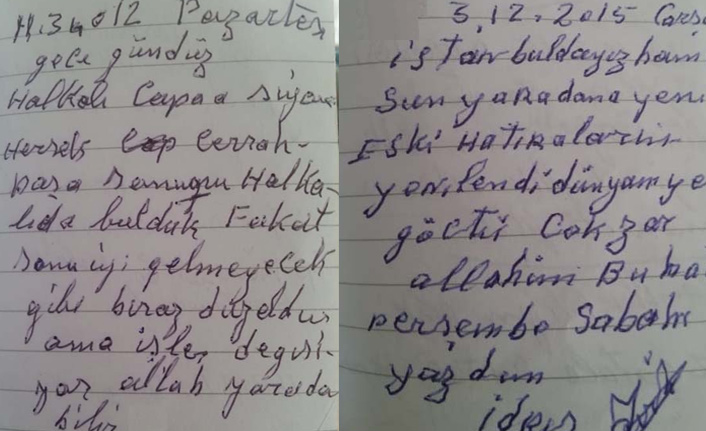 2012 Pazartes
gece gündüz
Halkalı Capaa
Hersek Cerrah-
paşa Halka-
lıda bulduk Fakat
sonu iyi gelmeyecek
gibi biraz düzeldür
ama işler degişi-
yor allah yarada
bilir
3.12.2015 Carş
istanbuldayız ham
Sun yaradana yeni
Eski Hatıraların
yenilendi dünyam ye
göctü Cok zor
allahim Bu ka
perşembe Sabahı
yazdım
idris